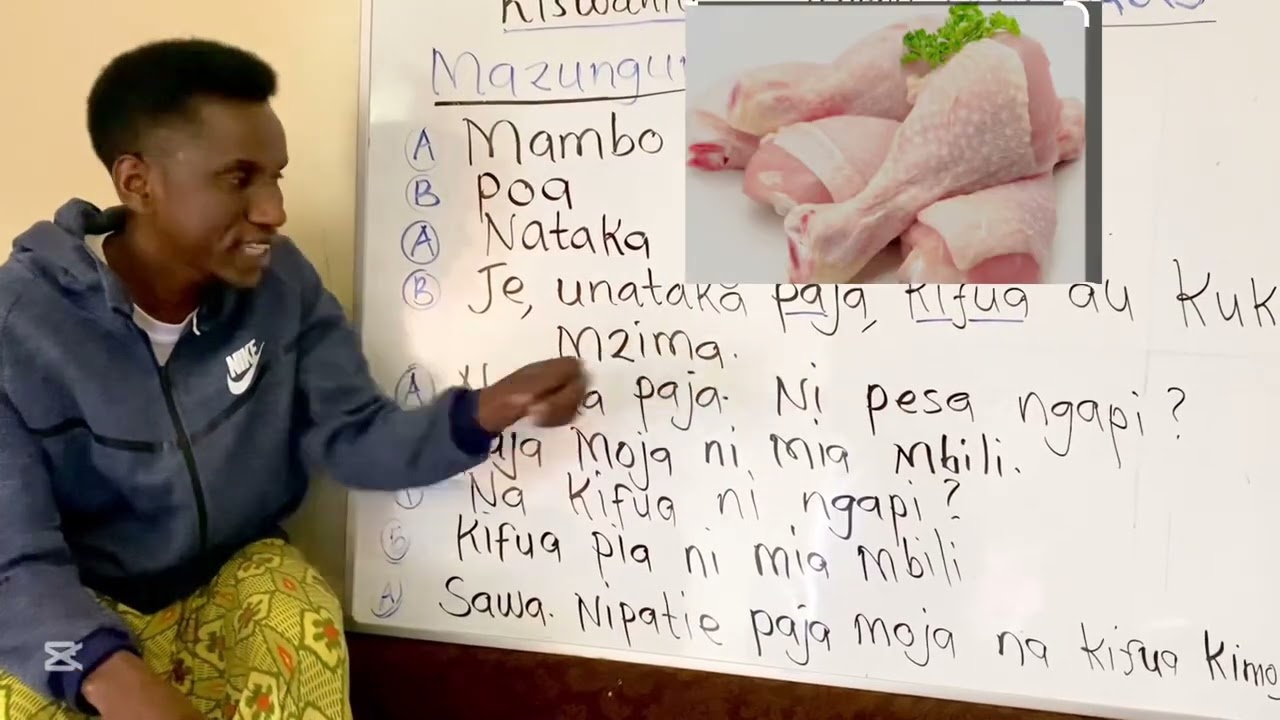 Mazungu
A Mambo
B poa
A Nataka
B Je, unataka paja, kifua au Kuk
Mzima.
A paja. Ni pesa ngapi?
Moja ni mia Mbili.
Na Kifua ni ngapi?
B Kifua pia ni mia Mbili
A Sawa. Nipatie paja moja na kifua kimo
NIKE